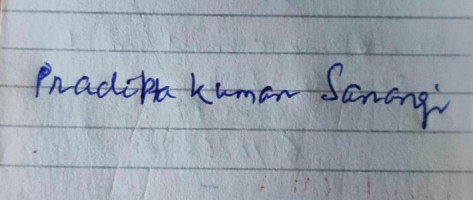 Pradipta kumar Sarangi